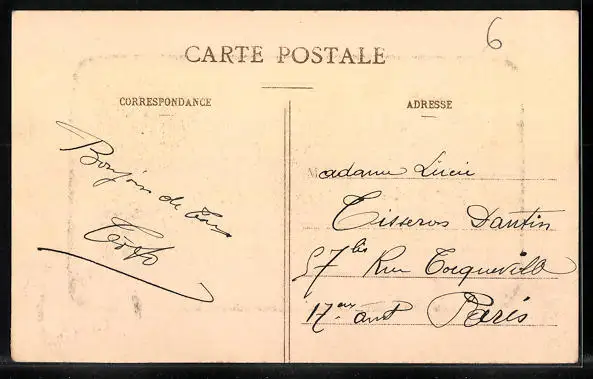 6
CARTE POSTALE
CORRESPONDANCE
Bonjour de tous
ADRESSE
Madame Lucie
Tisseros Dantin
57 bis Rue Tocqueville
17me arrt Paris